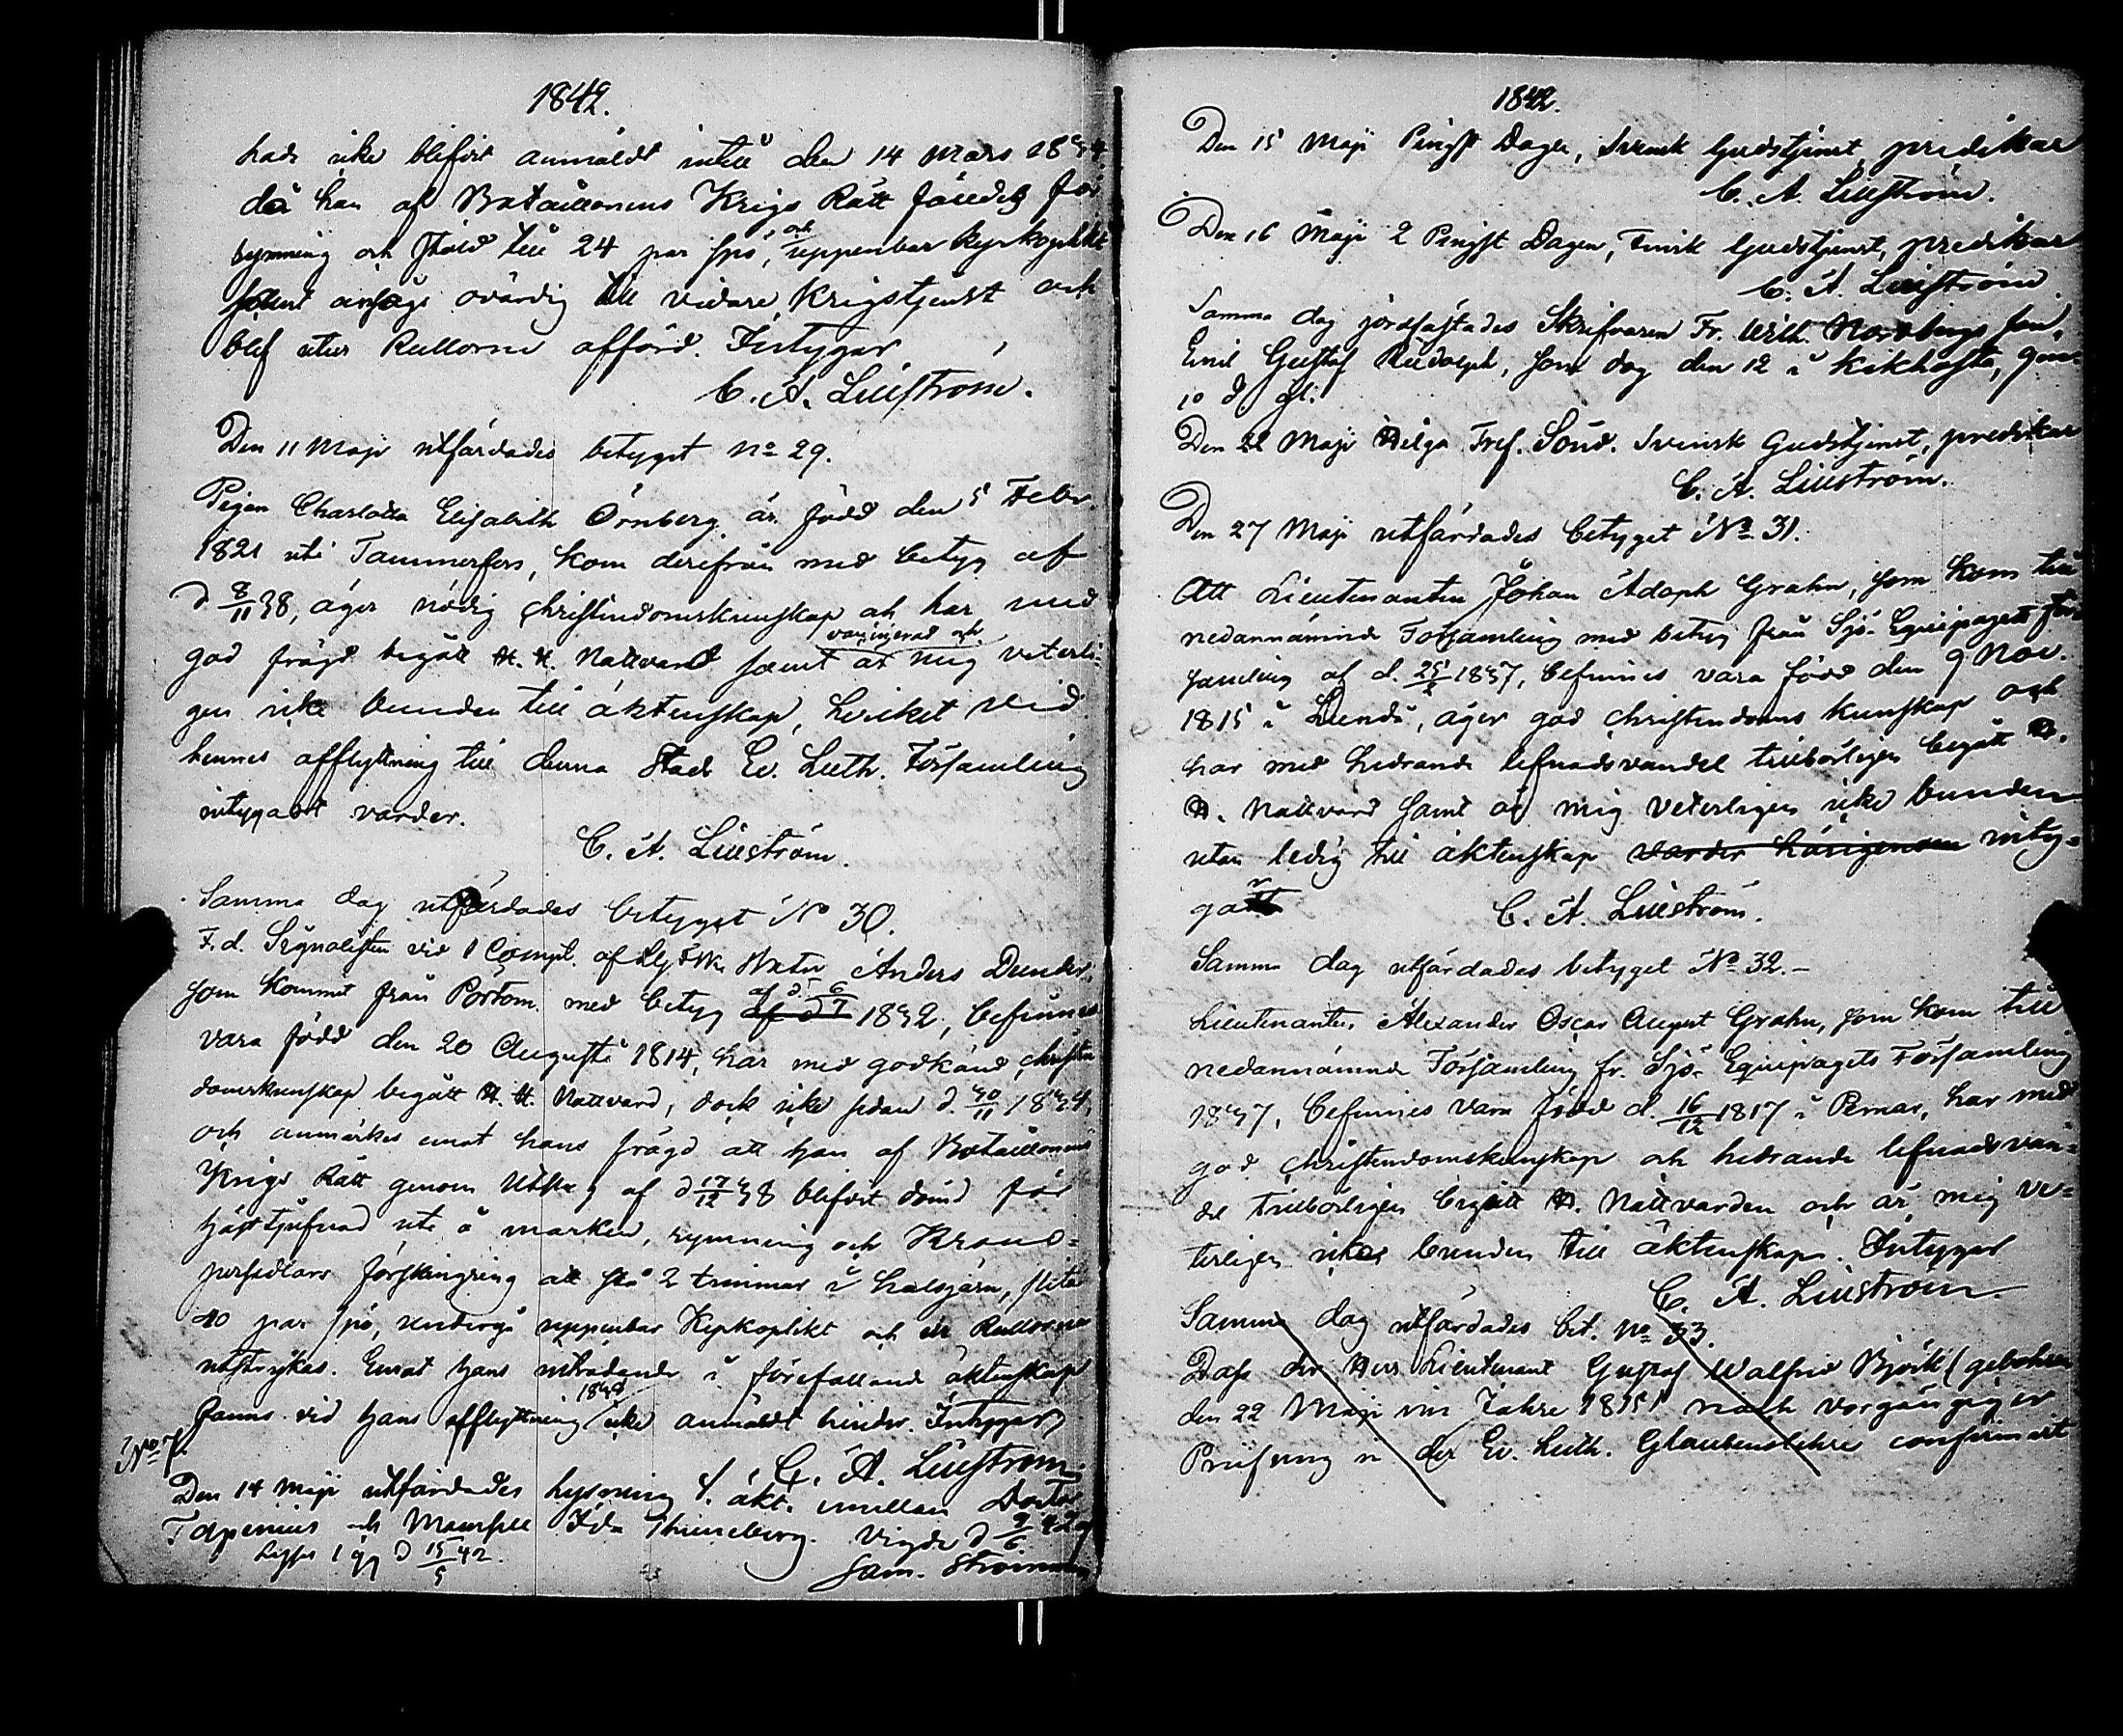 1842.
hade icke blifvit anmäldt intill den 14 Mars 1834
då han af Bataillonens Krigs Rätt fälldes för
rymning och stöld till 24 par spö, och uppenbar Kyrkoplikt
samt ansågs ovärdig till vidare Krigstjenst och
blef utur Rullorne afförd. Intygar
C. A. Lillström.
Den 11 Maji utfärdades betyget No 29.
Pigan Charlotta Elisabeth Örnberg är född den 5 Febr.
1821 uti Tammerfors, kom derifrån med betyg af
d 8/11 38, äger nödig christendomskunskap och har med
god frägd begått H. H. Nattvard samt är vaccinerad och mig veterli-
gen icke bunden till äktenskap, hvilket vid
hennes afflyttning till denna Stads Ev. Luth. Församling
intygadt varder.
C. A. Lillström.
Samma dag utfärdades betyget No 30.
F. d. Signalisten vid 1 Comp. af Anders Dunder,
som kommit från Portom med betyg af d. 6/1 1832, befinnes
vara född den 20 Augusti 1814, har med godkänd christen
domskunskap begått H. H. Nattvard, dock icke sedan d. 30/11 1834,
och anmärkes emot hans frägd att han af Bataillonens
Krigs Rätt genom Utslag af d 17/12 38 blifvit dömd för
hästtjufnad ute å marken, rymning och Krono-
persedlars förskingring att stå 2 timmar i halsjärn, slita
40 par spö, undergå uppenbar Kyrkoplikt och ur Rullorne
utstrykas. Emot hans inträdande i förefallande äktenskap
fanns vid hans afflyttning 1839 icke anmäldt hinder. Intygar
C. A. Lillström.
No 7.
Den 14 Maji utfärdades lysning t. äkt. emellan Doctor
och Mamsell Ida Thuneberg. Vigde d 9/6 42 af
Lystes 1 gg d 15/5 42.
Sam. Strömm
1842.
Den 15 Maji Pingst Dagen, Svensk Gudstjenst, predikar
C. A. Lillström.
Den 16 Maji 2 Pingst Dagen, Finsk Gudstjenst, predikar
C. A. Lillström
Samma dag jordfästades Skrifvaren Fr. Wilh. Nordbergs son,
Emil Gustaf Rudolph, som dog den 12 i kikhosta, gam
10 d gl.
Den 22 Maji Helga Tref. Sönd. Svensk Gudstjenst, predikar
C. A. Lillström.
Den 27 Maji utfärdades betyget No 31.
Att Lieutenanten Johan Adolph Grahn, som kom till
nedannämnde Församling med betyg från Sjö-Equipagets För-
samling af d. 1837, befinnes vara född den 9 Nov.
1815 i, äger god christendoms kunskap och
har med hedrande lefnadsvandel tillbörligen begått H.
H. Nattvard samt är mig veterligen icke bunden
utan ledig till äktenskap varder härigenom intyg-
gar
C. A. Lillström.
Samma dag utfärdades betyget No 32.-
Lieutenanten Alexander Oscar August Grahn, som kom till
nedannämnde Församling fr. Sjö-Equipagets Församling
1837, befinnes vara född d. 16/12 1817 i Pernar, har med
god christendomskunskap och hedrande lefnadsvan-
del tillbörligen begått H. Nattvarden och är mig ve-
terligen icke bunden till äktenskap. Intygar
C. A. Lillström
Samma dag utfärdades bet. No 33.
Dass der Herr Lieutenant Gustaf Walfrid Björk (gebohren
den 22 Maji im Jahre 1815) nach vorgängiger
Prüfung in der Ev. Luth. Glaubenslehre confirmirt